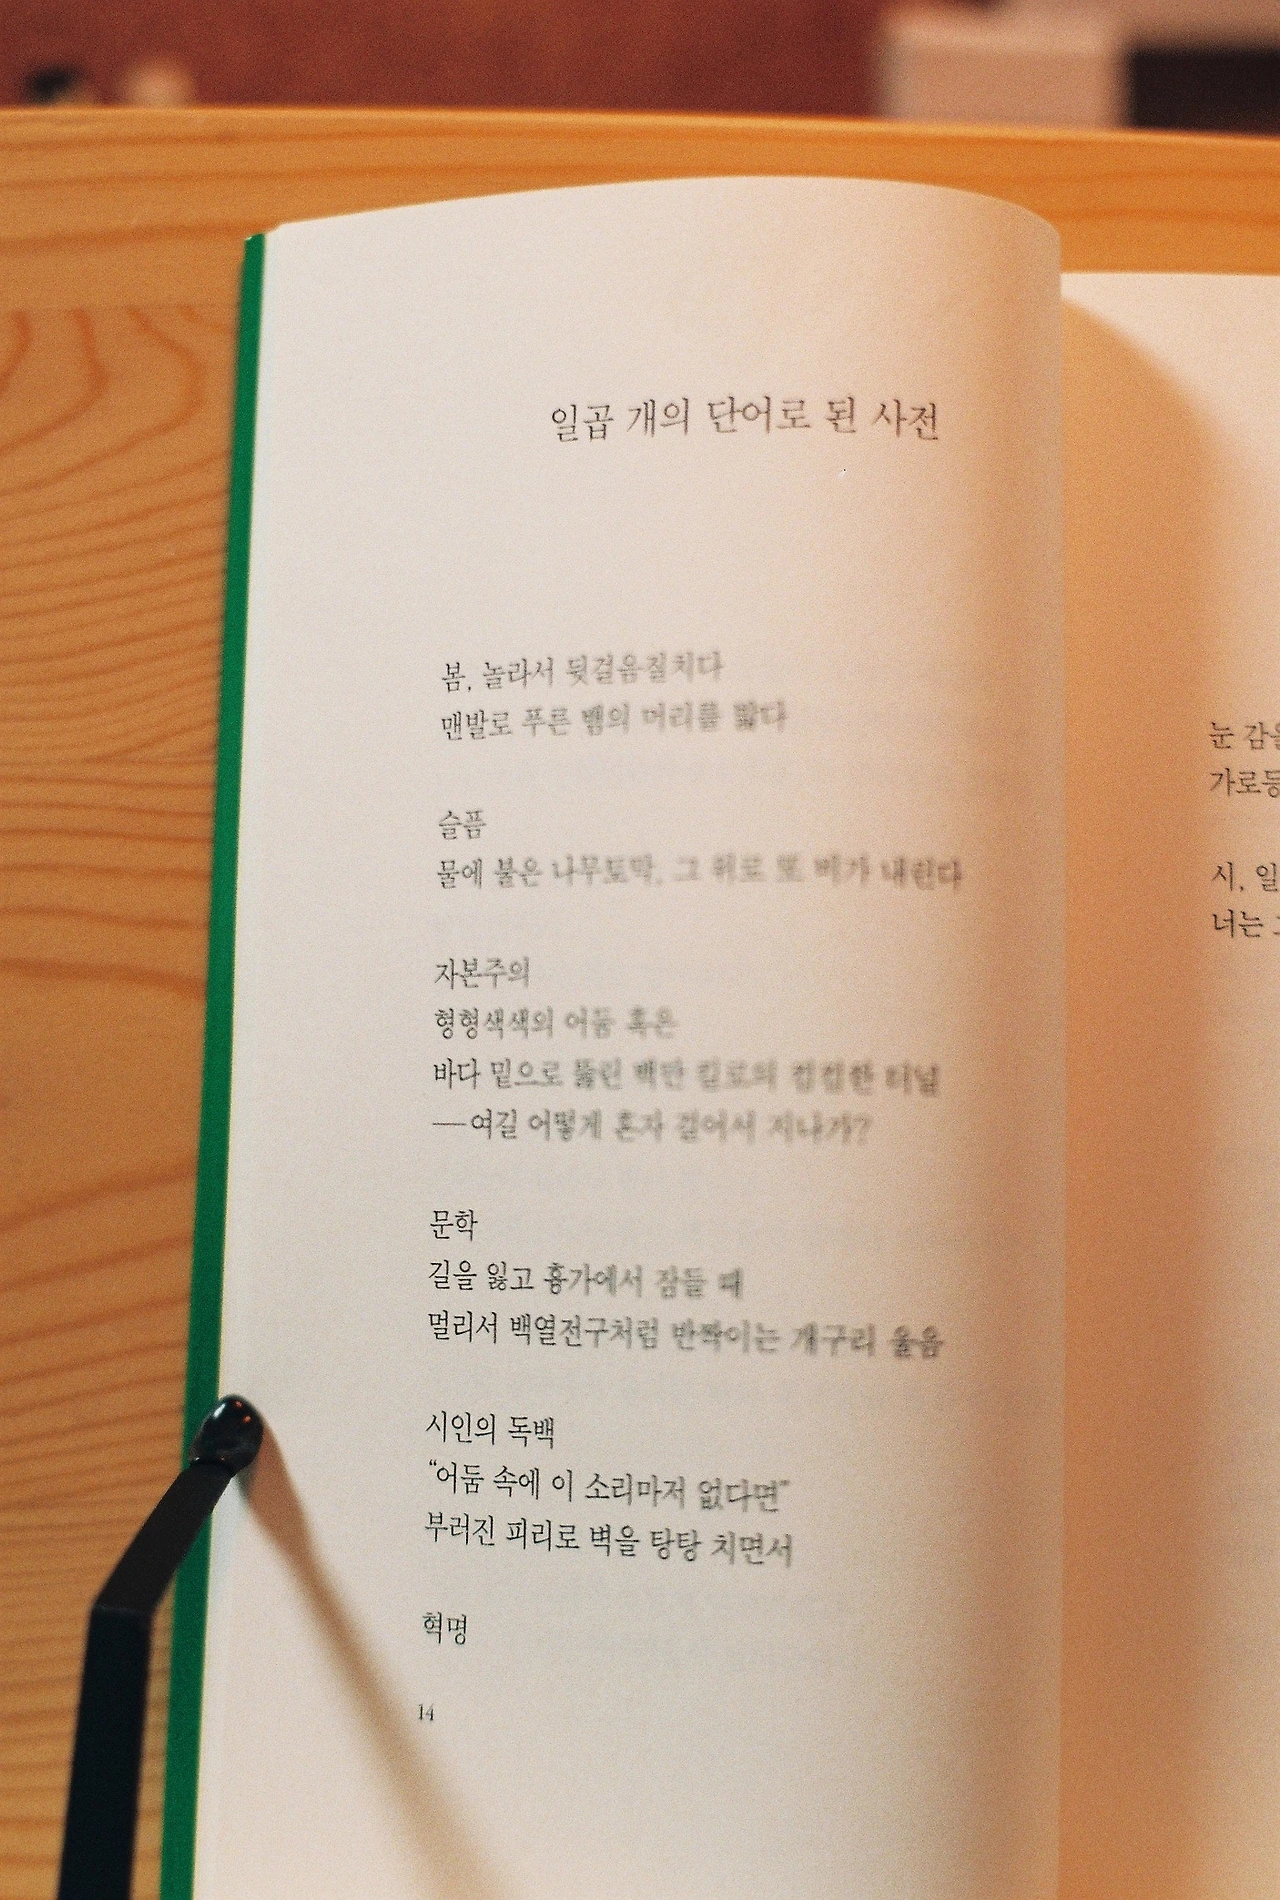 일곱 개의 단어로 된 사전
봄, 놀라서 뒷걸음질치다
맨발로 푸른 뱀의 머리를 밟다
슬픔
물에 불은 나무토막, 그 위로 또 비가 내린다
자본주의
형형색색의 어둠 혹은
바다 밑으로 뚫린 백만 킬로의 컴컴한 터널
—여길 어떻게 혼자 걸어서 지나가?
문학
길을 잃고 흉가에서 잠들 때
멀리서 백열전구처럼 반짝이는 개구리 울음
시인의 독백
“어둠 속에 이 소리마저 없다면”
부러진 피리로 벽을 탕탕 치면서
혁명
14
눈
가로등
시, 일
너는